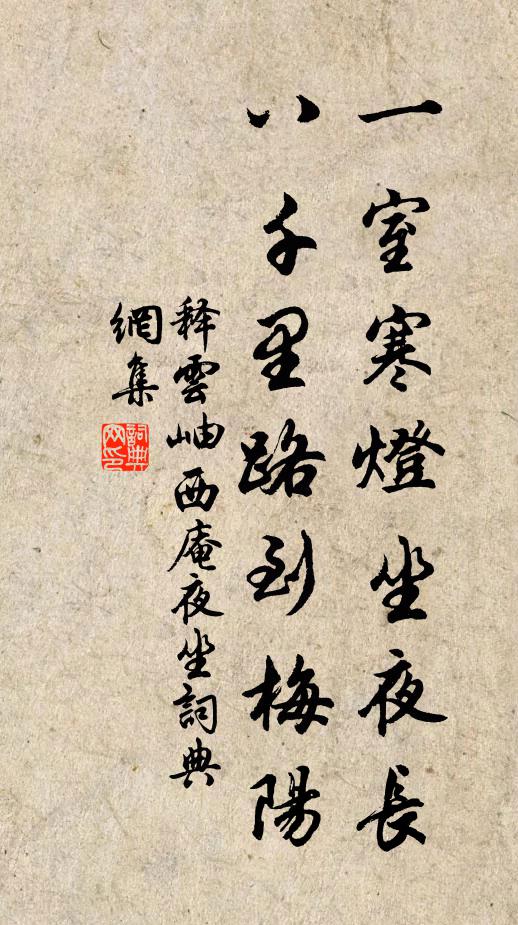 一室寒燈坐夜長
八千里路到梅陽
釋雲岫西庵夜坐詞典
網集
詞典
網印